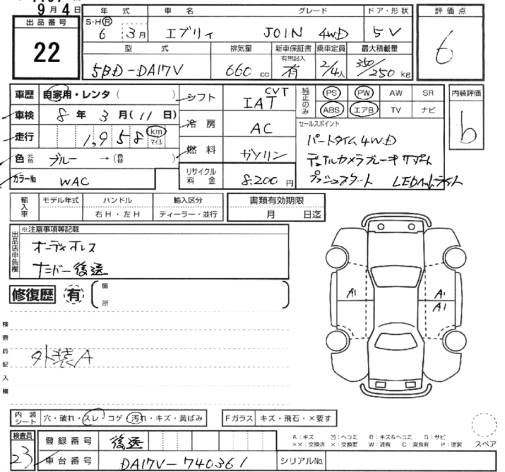 9月4日
出品番号 年式 車名 グレード ドア・形状 評価点
22 S・H・Ⓡ 6年 3月 エブリィ JOIN 4WD 5V 6
型式 排気量 新車保証書 乗車定員 最大積載量
5BD-DA17V 660cc 有無記入 有 2/4人 350/250kg
車歴 自家用・レンタ シフト CVT IAT 装備品 純正のみ PS PW AW SR 内装評価
車検 8年 3月(11日) 冷房 AC ABS エアB TV ナビ b
走行 1,958 km マイル 燃料 ガソリン セールスポイント
色 元色 ブルー → 色替( ) パートタイム4WD
カラーNo WAC リサイクル料金 8,200円 デュアルカメラブレーキサポート
プッシュスタート LEDヘッドライト
輸入車 モデル年式 ハンドル 輸入区分 書類有効期限
右H・左H ディーラー・並行 月 日迄
出品店申告欄 ※注意事項等記載
オーディオレス
ナンバー後送
修復歴 有 箇所
A1 A1
A1
検査員記入欄
外装A
内装シート 穴・破れ・スレ・コゲ 汚れ・キズ・黄ばみ Fガラス キズ・飛石・×要す
検査員 23 登録番号 後送
車台番号 DA17V-740361 シリアルNo.
A:キズ U:ヘコミ B:キズ&ヘコミ S:サビ
××:交換済 ×:要交換 W:波有 C:腐食有 P:要塗装 スペア